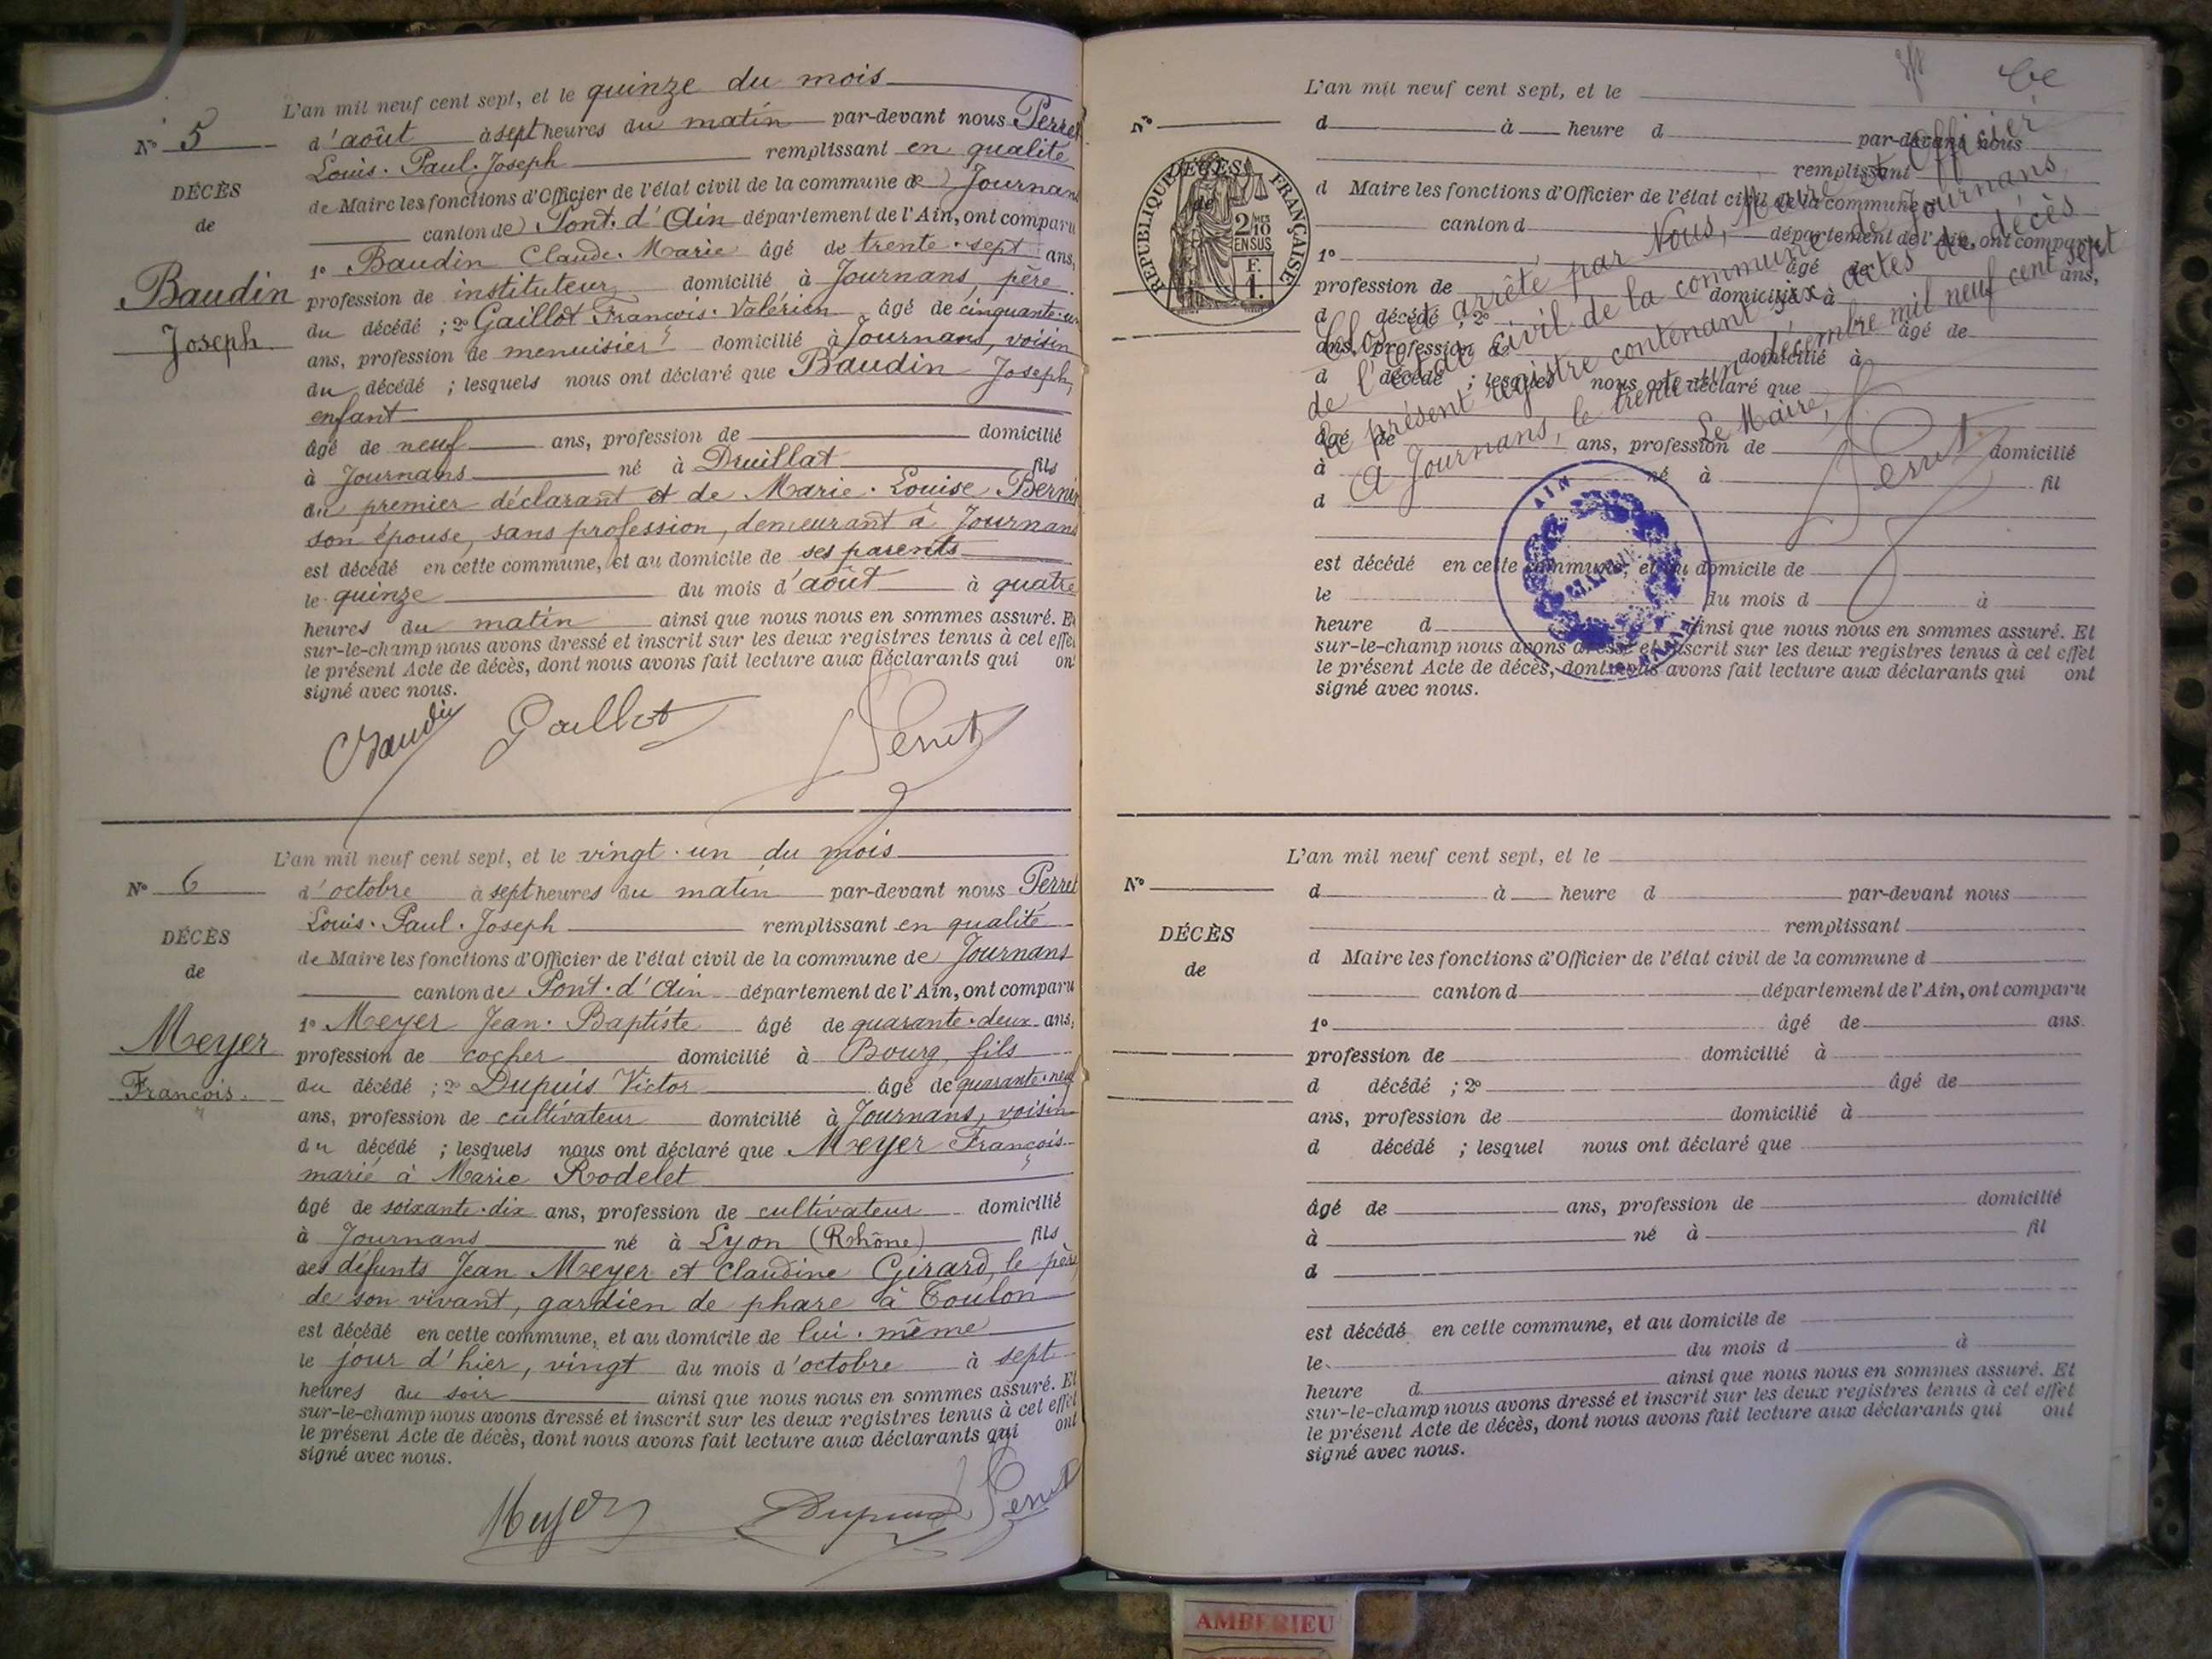 L'an mil neuf cent sept, et le quinze du mois
N° 5
d'août à sept heures du matin par-devant nous Perret
Louis-Paul-Joseph remplissant en qualité
DÉCÈS
de Maire les fonctions d'Officier de l'état civil de la commune de Journans
de
canton de Pont-d'Ain département de l'Ain, ont comparu
1° Baudin Claude-Marie âgé de trente-sept ans,
Baudin
profession de instituteur domicilié à Journans, père
du décédé ; 2° Gaillot François-Valérien âgé de cinquante-un
Joseph
ans, profession de menuisier domicilié à Journans, voisin
du décédé ; lesquels nous ont déclaré que Baudin Joseph,
enfant
âgé de neuf ans, profession de domicilié
à Journans né à Druillat fils
du premier déclarant et de Marie-Louise
son épouse, sans profession, demeurant à Journans
est décédé en cette commune, et au domicile de ses parents
le quinze du mois d'août à quatre
heures du matin ainsi que nous nous en sommes assuré. Et
sur-le-champ nous avons dressé et inscrit sur les deux registres tenus à cet effet
le présent Acte de décès, dont nous avons fait lecture aux déclarants qui ont
signé avec nous.
Baudin Gaillot Perret
L'an mil neuf cent sept, et le vingt-un du mois
N° 6
d'octobre à sept heures du matin par-devant nous Perret
Louis-Paul-Joseph remplissant en qualité
DÉCÈS
de Maire les fonctions d'Officier de l'état civil de la commune de Journans
de
canton de Pont-d'Ain département de l'Ain, ont comparu
1° Meyer Jean-Baptiste âgé de quarante-deux ans,
Meyer
profession de cocher domicilié à Bourg, fils
du décédé ; 2° Dupuis Victor âgé de quarante-neuf
François
ans, profession de cultivateur domicilié à Journans, voisin
du décédé ; lesquels nous ont déclaré que Meyer François
marié à Marie Rodelet
âgé de soixante-dix ans, profession de cultivateur domicilié
à Journans né à Lyon (Rhône) fils
des défunts Jean Meyer et Claudine Girard, le père
de son vivant, gardien de phare à Toulon
est décédé en cette commune, et au domicile de lui-même
le jour d'hier, vingt du mois d'octobre à sept
heures du soir ainsi que nous nous en sommes assuré. Et
sur-le-champ nous avons dressé et inscrit sur les deux registres tenus à cet effet
le présent Acte de décès, dont nous avons fait lecture aux déclarants qui ont
signé avec nous.
Meyer Dupuis Perret
L'an mil neuf cent sept, et le
N°
d à heure d par-devant nous
remplissant
DÉCÈS
de
RÉPUBLIQUE FRANÇAISE
2/10 MES
EN SUS
F.
1.
d Maire les fonctions d'Officier de l'état civil de la commune d
canton d département de l'Ain, ont comparu
1° âgé de ans,
profession de domicilié à
d décédé ; 2° âgé de
ans, profession de domicilié à
d décédé ; lesquel nous ont déclaré que
âgé de ans, profession de domicilié
à né à fil
d
Clos et arrêté par Nous, Maire et Officier
de l'état civil de la commune de Journans
le présent registre contenant six actes de décès
A Journans, le trente-un décembre mil neuf cent sept
Le Maire,
Perret
AIN
est décédé en cette commune, et au domicile de
le du mois d à
heure d ainsi que nous nous en sommes assuré. Et
sur-le-champ nous avons dressé et inscrit sur les deux registres tenus à cet effet
le présent Acte de décès, dont nous avons fait lecture aux déclarants qui ont
signé avec nous.
L'an mil neuf cent sept, et le
N°
d à heure d par-devant nous
remplissant
DÉCÈS
d Maire les fonctions d'Officier de l'état civil de la commune d
de
canton d département de l'Ain, ont comparu
1° âgé de ans.
profession de domicilié à
d décédé ; 2° âgé de
ans, profession de domicilié à
d décédé ; lesquel nous ont déclaré que
âgé de ans, profession de domicilié
à né à fil
d
est décédé en cette commune, et au domicile de
le du mois d à
heure d ainsi que nous nous en sommes assuré. Et
sur-le-champ nous avons dressé et inscrit sur les deux registres tenus à cet effet
le présent Acte de décès, dont nous avons fait lecture aux déclarants qui ont
signé avec nous.
AMBERIEU